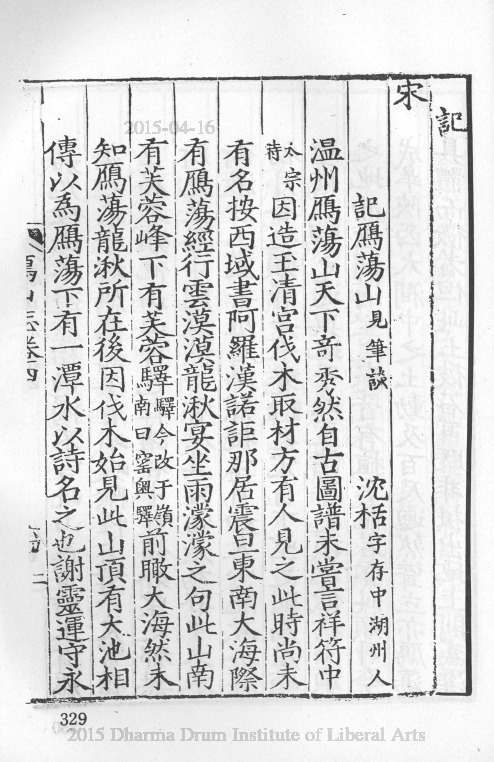 記
宋
記鴈蕩山見筆談 沈括字存中湖州人
温州鴈蕩山天下竒秀然自古圖譜未嘗言祥符中
太宗時因造玉清宫伐木取材方有人見之此時尚未
有名按西域書阿羅漢諾詎那居震旦東南大海際
有鴈蕩經行雲漠漠龍湫宴坐雨濛濛之句此山南
有芙蓉峰下有芙蓉驛驛今改于嶺南曰窰奧驛前瞰大海然未
知鴈蕩龍湫所在後因伐木始見此山頂有大池相
傳以為鴈蕩下有一潭水以詩名之也謝靈運守永
山志卷四
二
329
2015-04-16
2015 Dharma Drum Institute of Liberal Arts